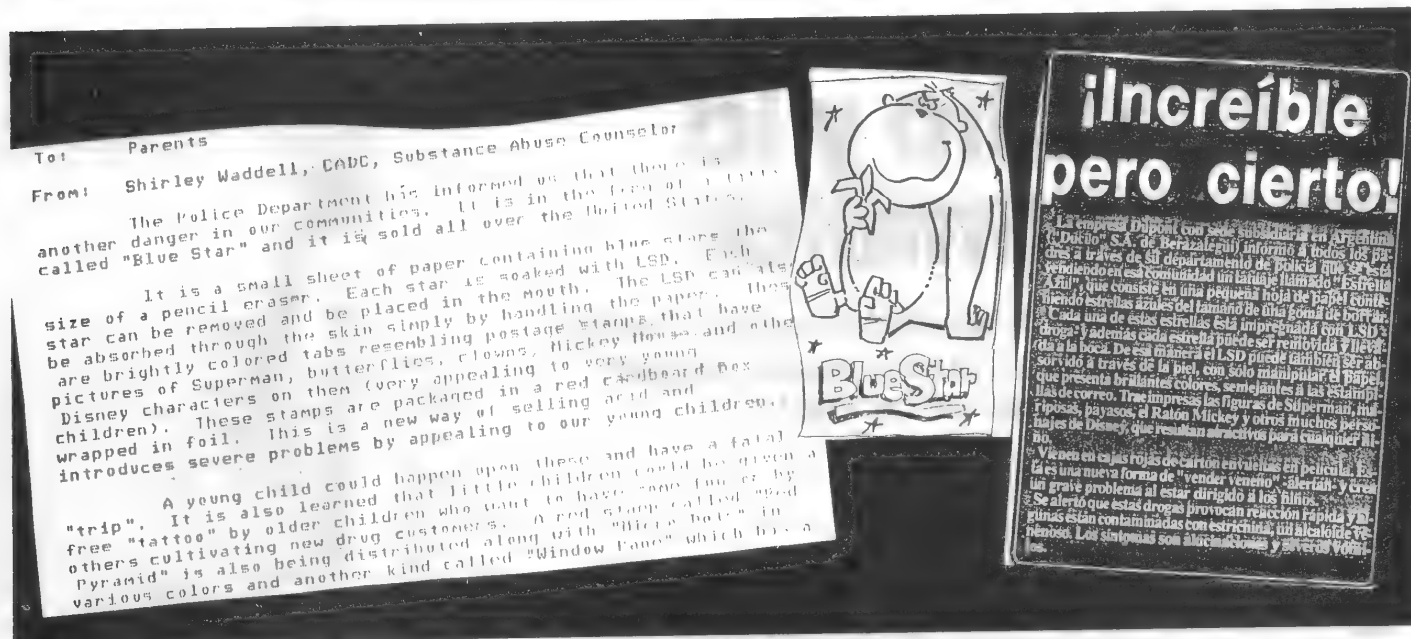 To: Parents
From: Shirley Waddell, CADC, Substance Abuse Counselor
The Police Department has informed us that there is
another danger in our communities. It is in the form of a
called "Blue Star" and it is sold all over the United States.
It is a small sheet of paper containing blue stars the
size of a pencil eraser. Each star is soaked with LSD. Each
star can be removed and be placed in the mouth. The LSD can als
be absorbed through the skin simply by handling the paper. Thes
are brightly colored tabs resembling postage stamps that have
pictures of Superman, butterflies, clowns, Mickey Mouse and othe
Disney characters on them (very appealing to very young
children). These stamps are packaged in a red cardboard box
wrapped in foil. This is a new way of selling acid and
introduces severe problems by appealing to our young children.
A young child could happen upon these and have a fatal
"trip". It is also learned that little children could be given a
free "tattoo" by older children who want to have some fun or by
others cultivating new drug customers. A red stamp called "Red
Pyramid" is also being distributed along with "Micro Dots" in
various colors and another kind called "Window Pane" which has a
BlueStar
¡Increíble
pero cierto!
La empresa Dupont con sede subsidiaria en Argentina
("Ducilo" S.A. de Berazategui) informó a todos los pa-
dres a través de su departamento de policía que se está
vendiendo en esa comunidad un tatuaje llamado "Estrella
Azul", que consiste en una pequeña hoja de papel conte-
niendo estrellas azules del tamaño de una goma de borrar.
Cada una de éstas estrellas está impregnada con LSD -
droga- y además cada estrella puede ser removida y lleva-
da a la boca. De esa manera el LSD puede también ser ab-
sorvido a través de la piel, con sólo manipular el papel,
que presenta brillantes colores, semejantes a las estampi-
llas de correo. Trae impresas las figuras de Superman, ma-
riposas, payasos, el Ratón Mickey y otros muchos perso-
najes de Disney, que resultan atractivos para cualquier ni-
ño.
Vienen en cajas rojas de cartón envueltas en película. Es-
ta es una nueva forma de "vender veneno" -alertan- y crea
un grave problema al estar dirigido a los niños.
Se alertó que estas drogas provocan reacción rápida y al-
gunas están contaminadas con estricnina, un alcaloide ve-
nenoso. Los síntomas son alucinaciones y severos vómi-
tos.